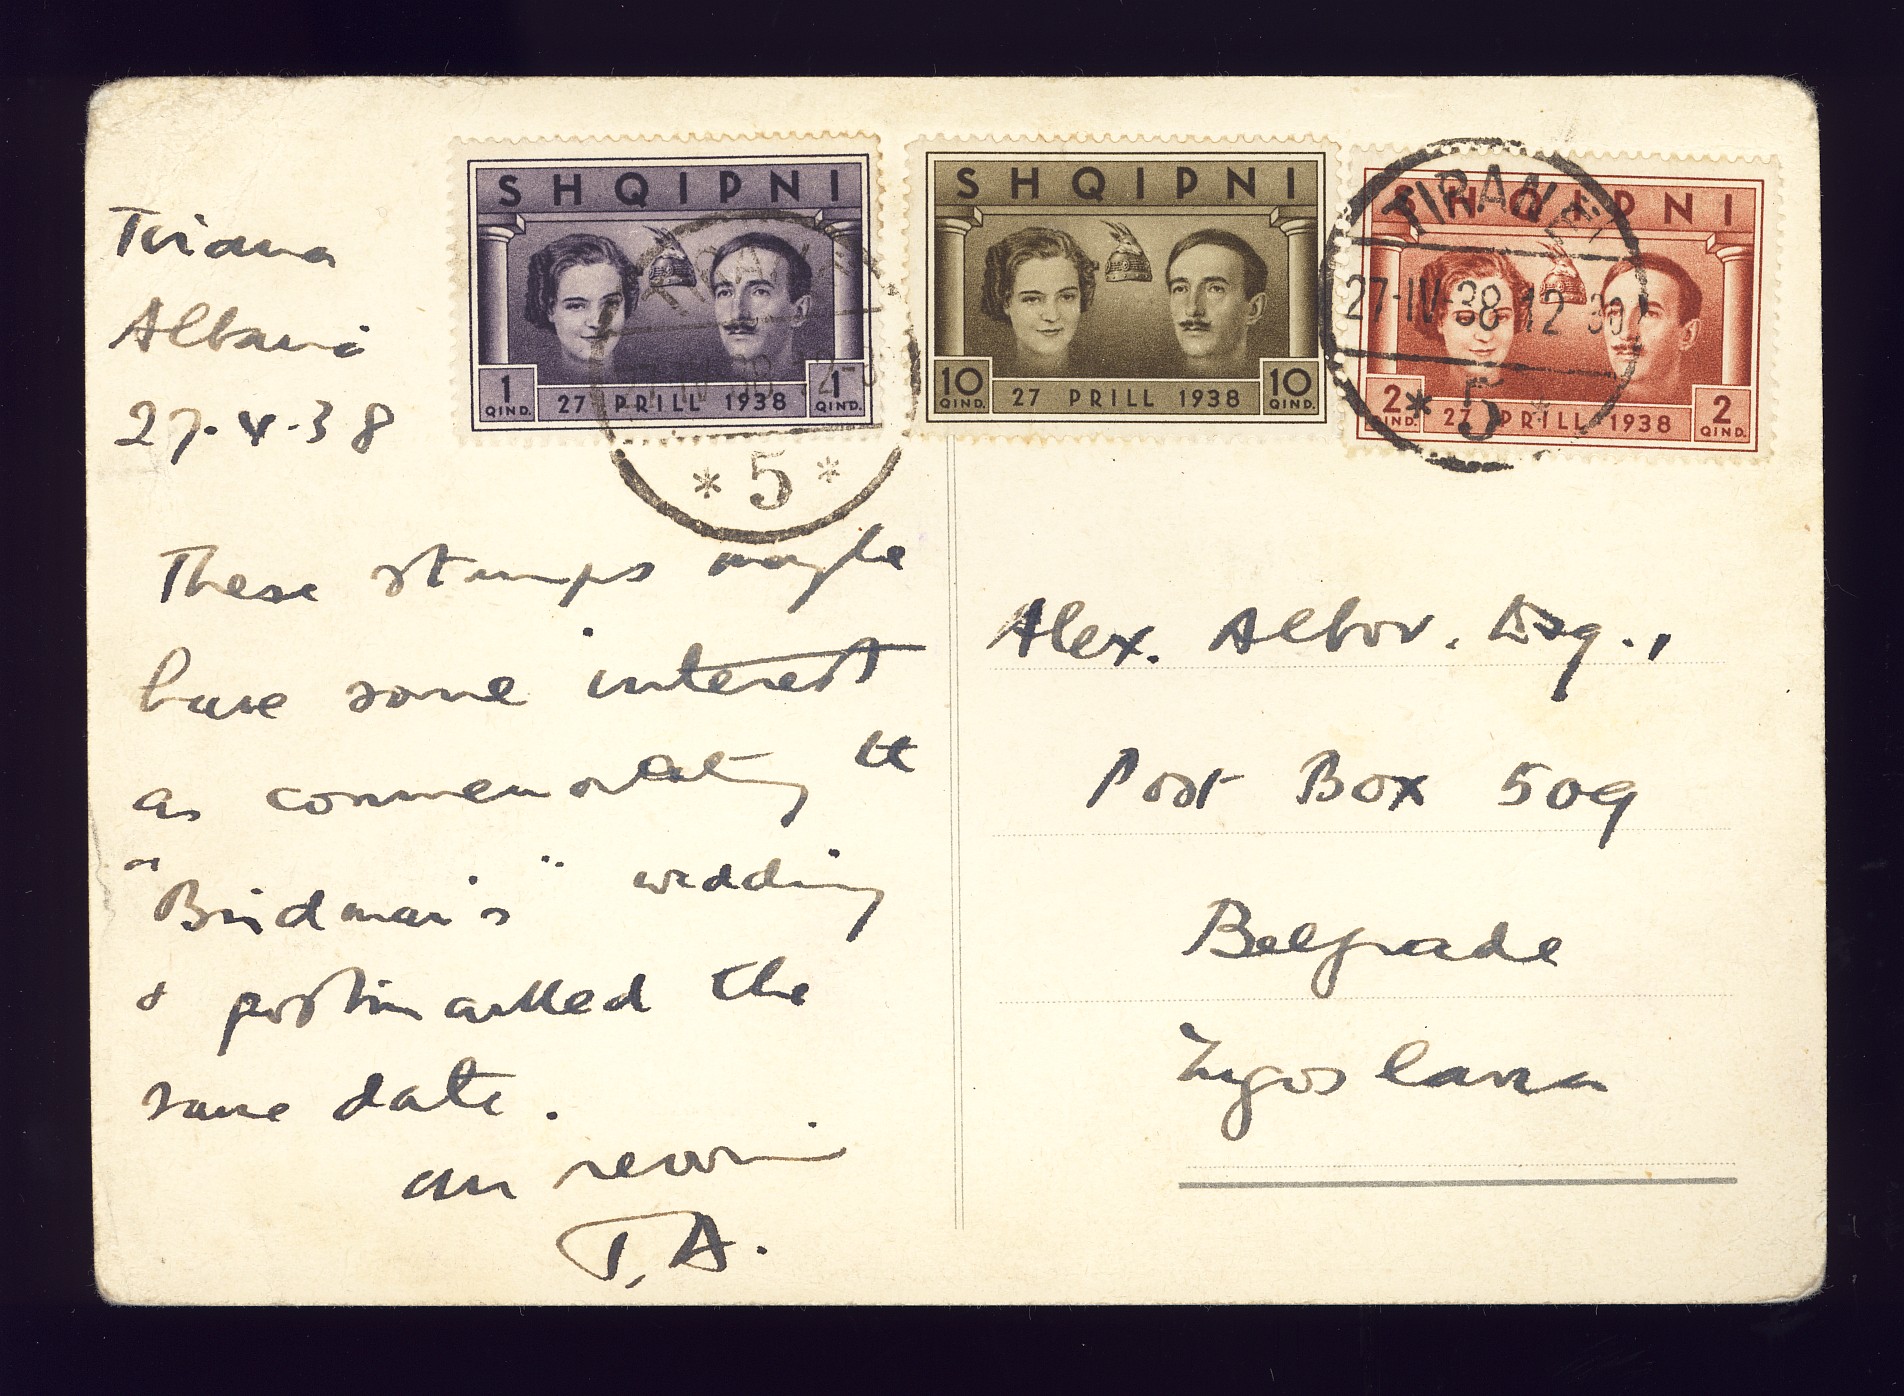 SHQIPNI
1 QIND. 27 PRILL 1938 1 QIND.
SHQIPNI
10 QIND. 27 PRILL 1938 10 QIND.
SHQIPNI
2 QIND. 27 PRILL 1938 2 QIND.
* 5 *
TIRANE
27-IV-38 12-30
* 5 *
Tirana
Albani
27.V.38
These stamps maybe
have some interest
as commemorating the
"Birdman's" wedding
& postmarked the
same date.
au revoir
T.A.
Alex. Albov. Esq.,
Post Box 509
Belgrade
Yugoslavia